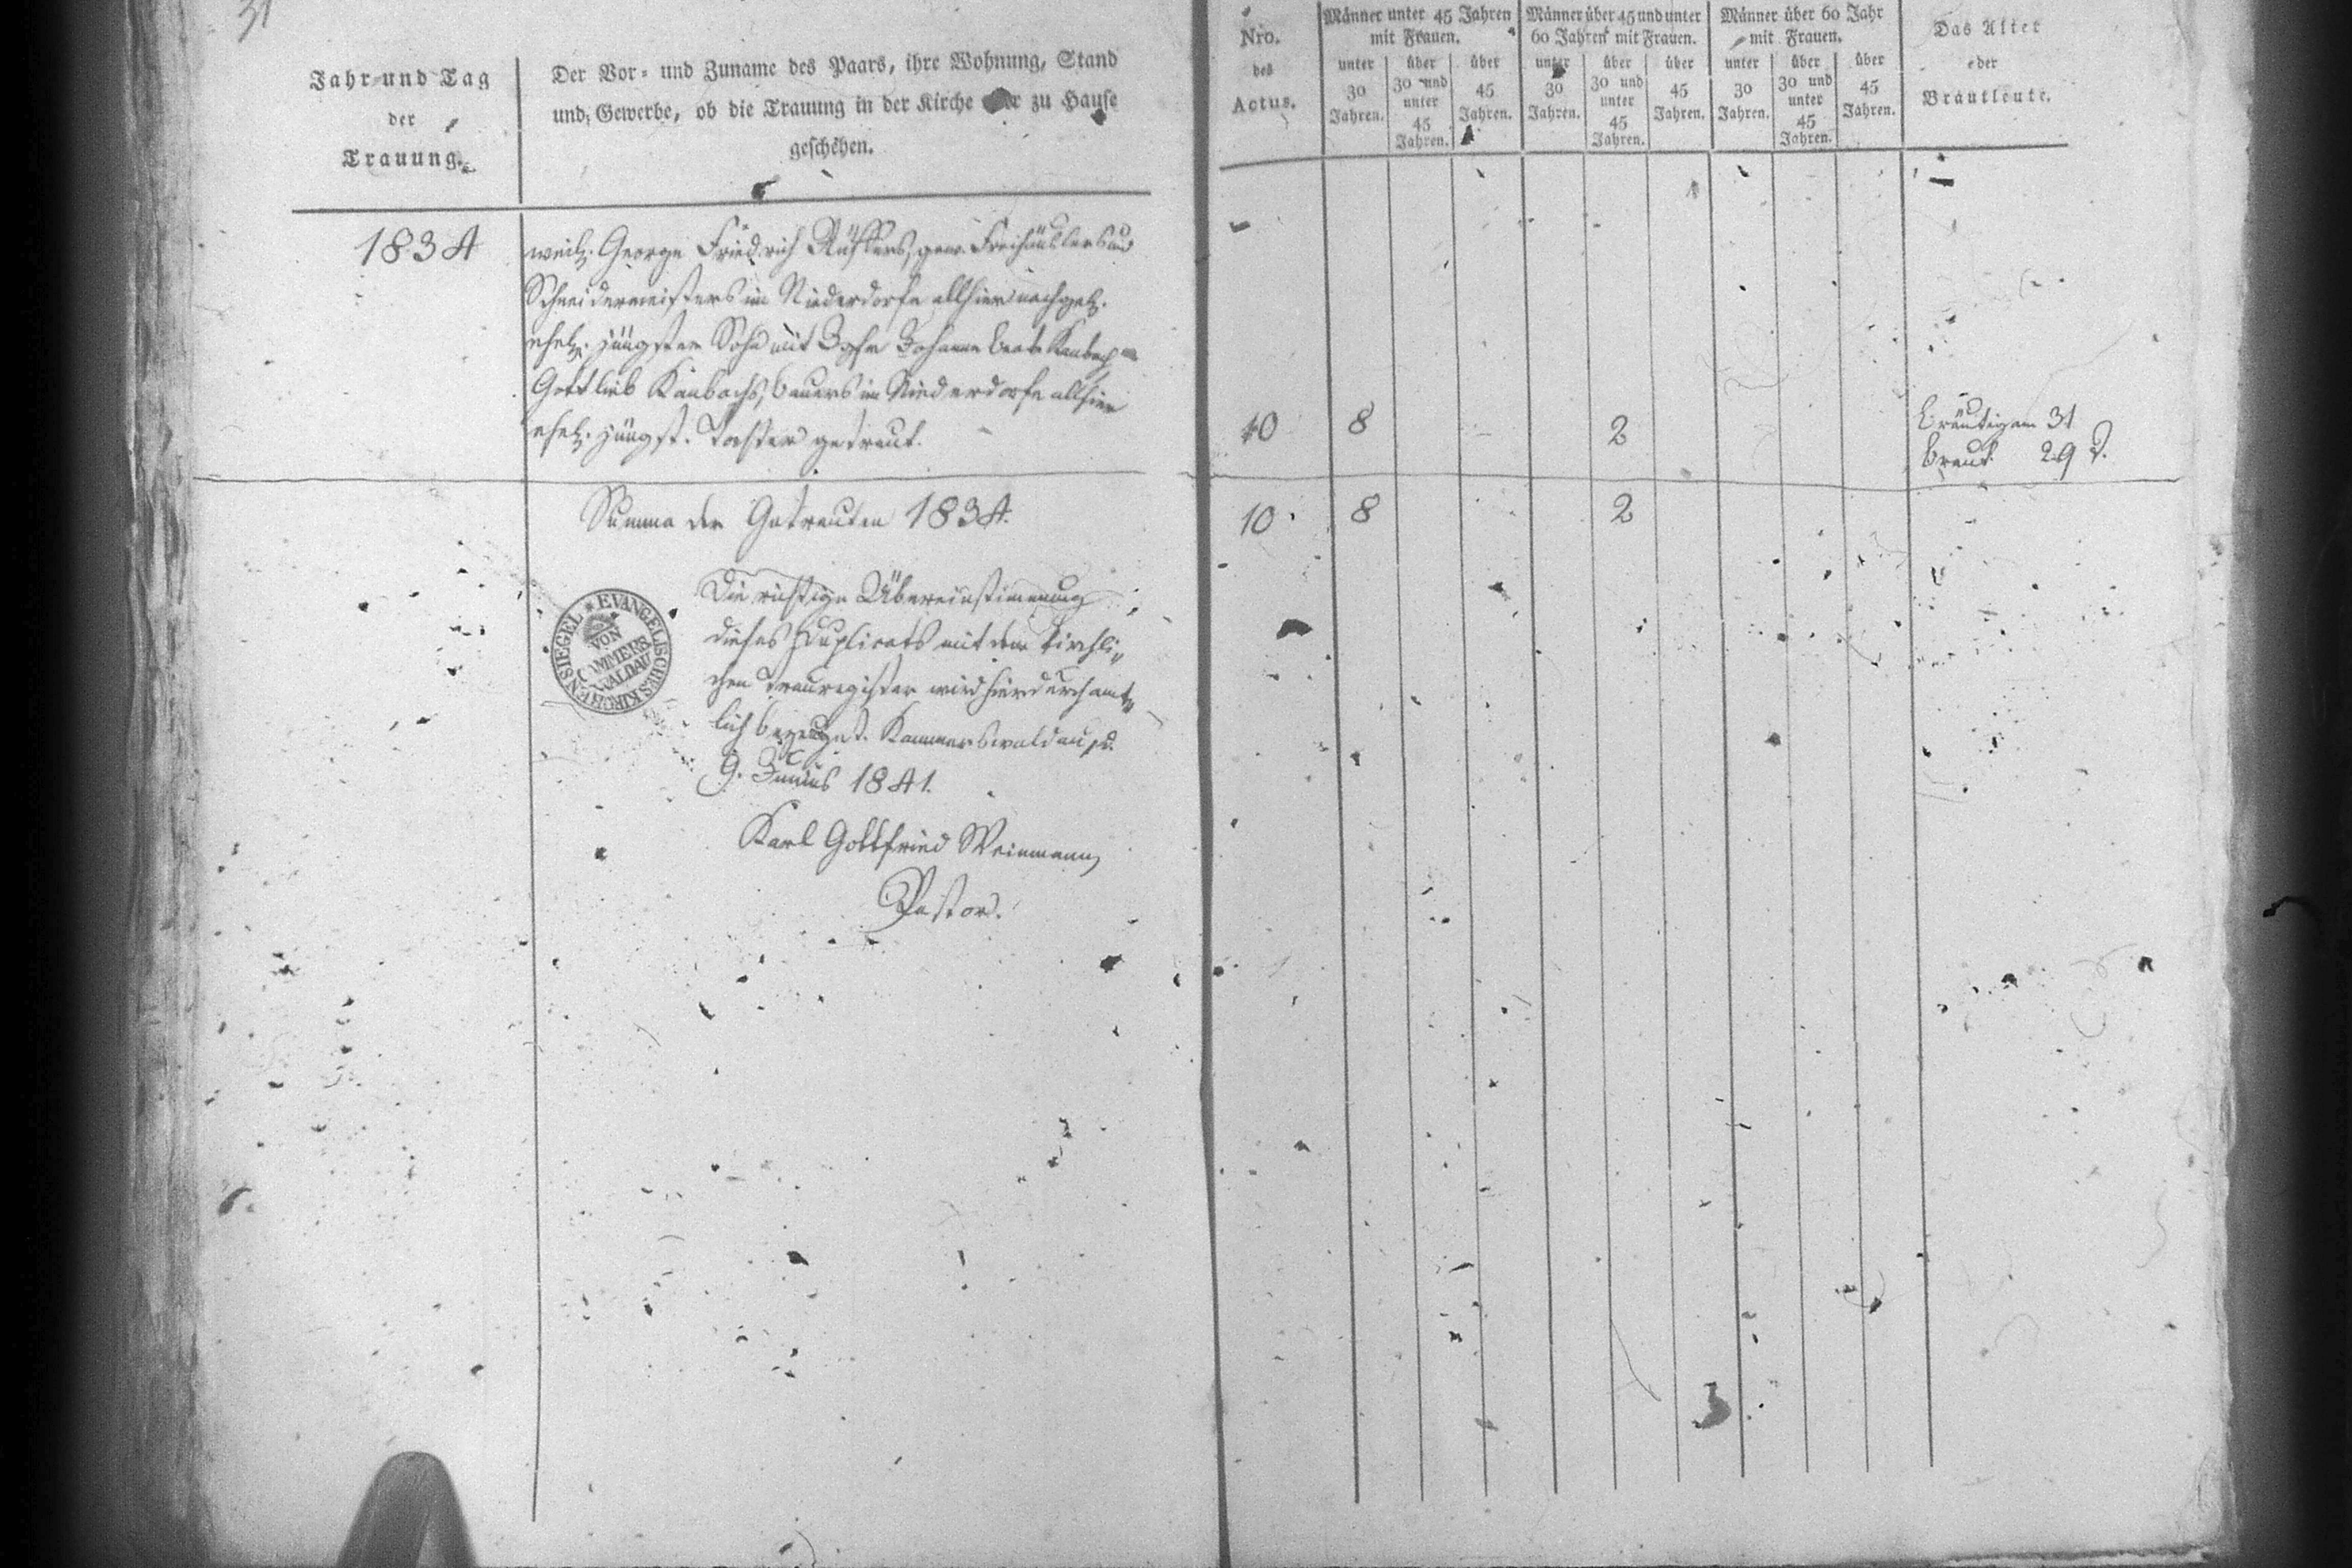 31
Jahr und Tag
der
Trauung.
Der Vor- und Zuname des Paars, ihre Wohnung, Stand
und Gewerbe, ob die Trauung in der Kirche oder zu Hause
geschehen.
Nro.
des
Actus.
Männer unter 45 Jahren
mit Frauen.
unter
30
Jahren.
über
30 und
unter
45
Jahren.
über
45
Jahren.
Männer über 45 und unter
60 Jahren mit Frauen.
unter
30
Jahren.
über
30 und
unter
45
Jahren.
über
45
Jahren.
Männer über 60 Jahr
mit Frauen.
unter
30
Jahren.
über
30 und
unter
45
Jahren.
über
45
Jahren.
Das Alter
der
Brautleute.
1834
weil. George Friedrich gew. Freihäuslers und
Schneidermeisters im Niederdorfe allhier nachgel.
ehel. jüngster Sohn mit Igfr Johanne Beate Kambach
Gottlieb Kambachs, Bauers im Niederdorfe allhier
ehel. jüngst. Tochter getraut.
10 8 2
Bräutigam 31
Braut 29 J.
Summa der Getrauten 1834.
10 8 2
EVANGELISCHES KIRCHENSIEGEL
VON
CAMMERS
WALDAU
Die richtige Übereinstimmung
dieses Duplicats mit dem kirchli-
chen Trauregister wird hierdurch amt-
lich bezeugt. Kammerswaldau, d.
9. Junius 1841.
Karl Gottfried Weinmann,
Pastor.